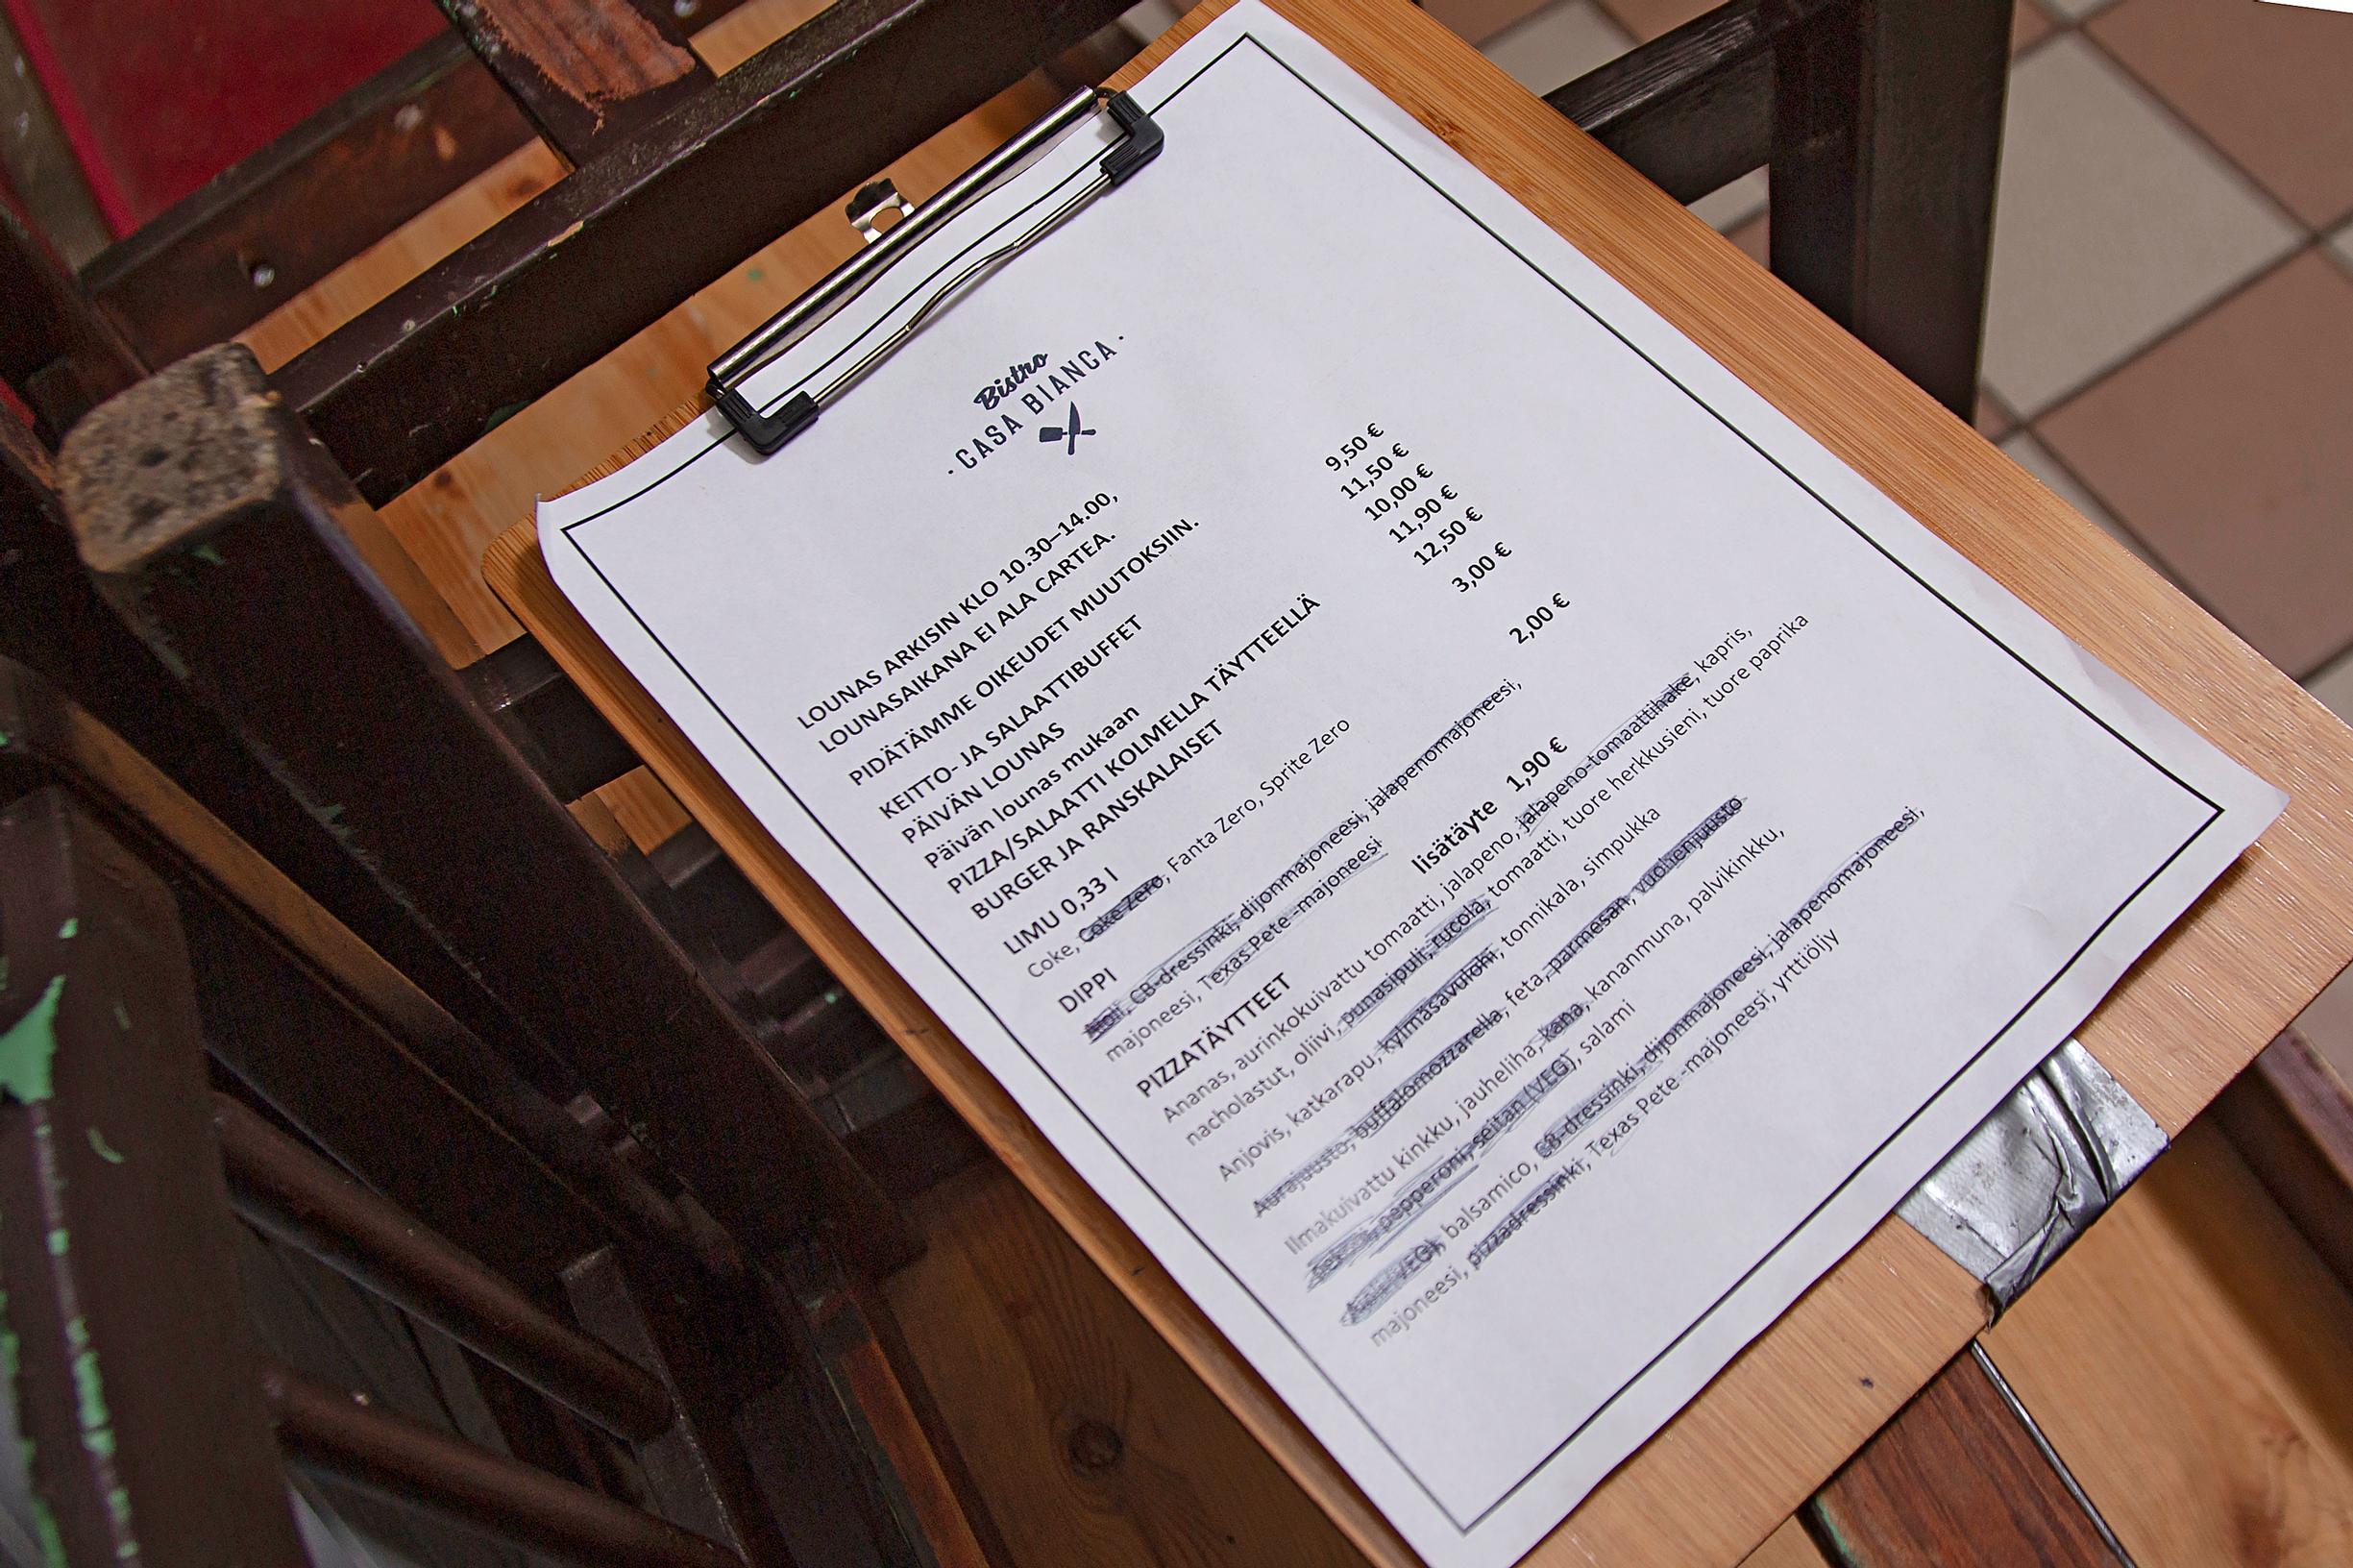 Bistro
· CASA BIANCA ·
LOUNAS ARKISIN KLO 10.30–14.00,
LOUNASAIKANA EI ALA CARTEA.
PIDÄTÄMME OIKEUDET MUUTOKSIIN.
KEITTO- JA SALAATTIBUFFET 9,50 €
PÄIVÄN LOUNAS 11,50 €
Päivän lounas mukaan 10,00 €
PIZZA/SALAATTI KOLMELLA TÄYTTEELLÄ 11,90 €
BURGER JA RANSKALAISET 12,50 €
LIMU 0,33 l 3,00 €
Coke, Coke Zero, Fanta Zero, Sprite Zero
DIPPI 2,00 €
CB-dressinki, dijonmajoneesi, jalapenomajoneesi,
majoneesi, Texas Pete -majoneesi
PIZZATÄYTTEET lisätäyte 1,90 €
Ananas, aurinkokuivattu tomaatti, jalapeno, jalapeno-tomaattihake, kapris,
nacholastut, oliivi, punasipuli, rucola, tomaatti, tuore herkkusieni, tuore paprika
Anjovis, katkarapu, kylmäsavulohi, tonnikala, simpukka
Aurajuusto, buffalomozzarella, feta, parmesan, vuohenjuusto
Ilmakuivattu kinkku, jauheliha, kana, kananmuna, palvikinkku,
pepperoni, seitan (VEG), salami
balsamico, CB-dressinki, dijonmajoneesi, jalapenomajoneesi,
majoneesi, pizzadressinki, Texas Pete -majoneesi, yrttiöljy